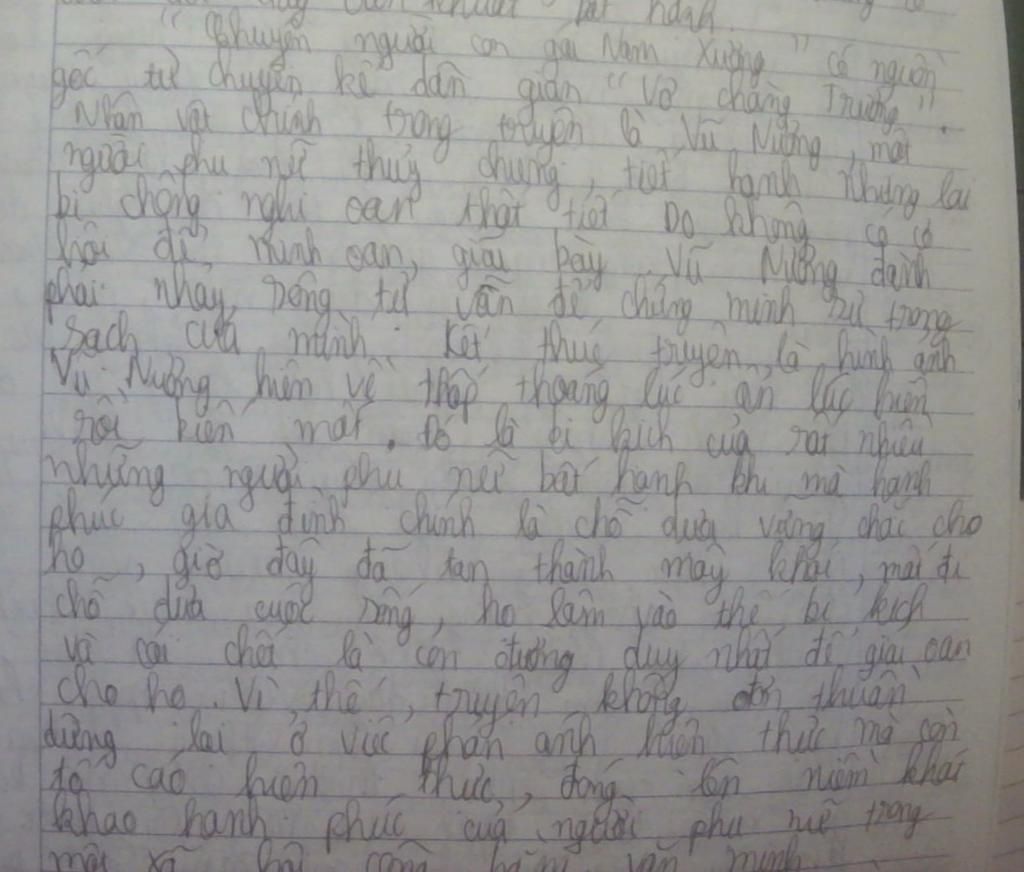 bất hạnh.
"Chuyện người con gái Nam Xương" có nguồn
gốc từ chuyện kể dân gian "Vợ chàng Trương".
Nhân vật chính trong truyện là Vũ Nương, một
người phụ nữ thủy chung, tiết hạnh nhưng lại
bị chồng nghi oan thất tiết. Do không có cơ
hội để minh oan, giãi bày, Vũ Nương đành
phải nhảy sông tự vẫn để chứng minh sự trong
sạch của mình. Kết thúc truyện là hình ảnh
Vũ Nương hiện về thấp thoáng lúc ẩn lúc hiện
rồi biến mất. Đó là bi kịch của rất nhiều
những người phụ nữ bất hạnh khi mà hạnh
phúc gia đình chính là chỗ dựa vững chắc cho
họ, giờ đây đã tan thành mây khói, mất đi
chỗ dựa cuộc sống, họ lâm vào thế bi kịch
và cái chết là con đường duy nhất để giải oan
cho họ. Vì thế, truyện không đơn thuần
dừng lại ở việc phản ánh hiện thực mà còn
tố cáo hiện thực, đồng lên niềm khát
khao hạnh phúc của người phụ nữ trong
một xã hội công bằng văn minh